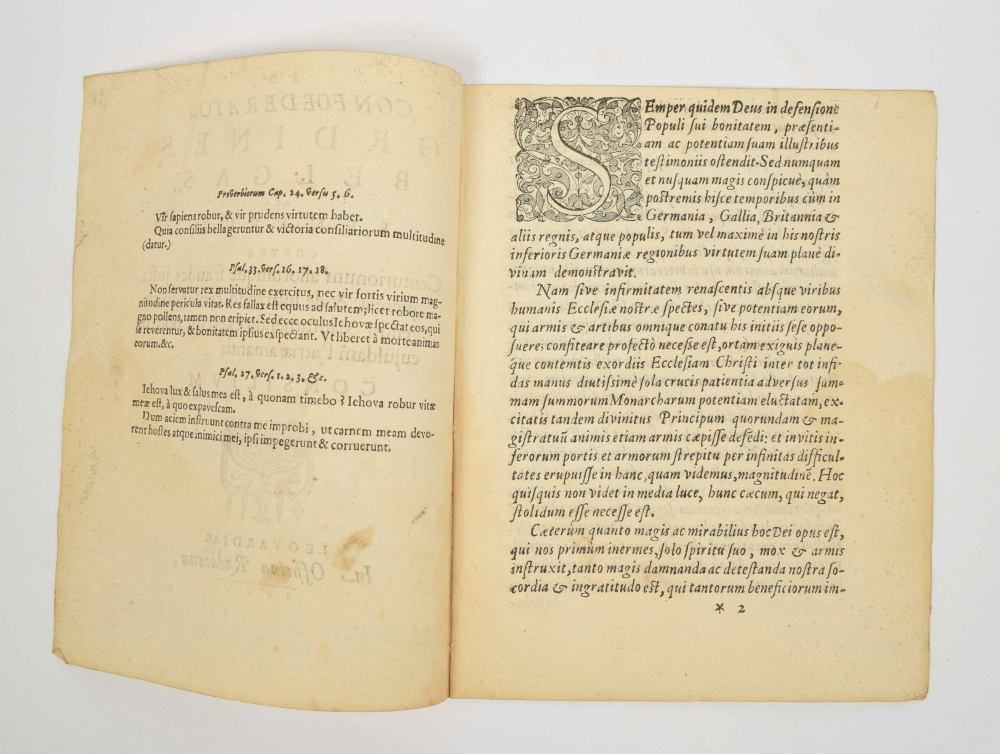 Proverbiorum Cap. 24. Versu 5. 6.
Vir sapiens robur, & vir prudens virtutem habet.
Quia consiliis bella geruntur & victoria consiliariorum multitudine
(datur.)
Psal. 33. Vers. 16. 17. 18.
Non servatur rex multitudine exercitus, nec vir fortis virium mag-
nitudine pericula vitat. Res fallax est equus ad salutem; licet robore ma-
gno pollens, tamen non eripiet. Sed ecce oculus Iehovæ spectat eos, qui
se reverentur, & bonitatem ipsius expectant. Vt liberet à morte animas
eorum. &c.
Psal. 27. Vers. 1. 2. 3. &c.
Iehova lux & salus mea est, à quonam timebo? Iehova robur vitæ
meæ est, à quo expavescam.
Dum aciem instruunt contra me improbi, ut carnem meam devo-
rent hostes atque inimici mei, ipsi impegerunt & corruerunt.
SEmper quidem Deus in defensione
Populi sui bonitatem, præsenti-
am ac potentiam suam illustribus
testimoniis ostendit. Sed numquam
et nusquam magis conspicuè, quàm
postremis hisce temporibus cùm in
Germania, Gallia, Britannia &
aliis regnis, atque populis, tum vel maximè in his nostris
inferioris Germaniæ regionibus virtutem suam planè di-
vinam demonstravit.
Nam sive infirmitatem renascentis absque viribus
humanis Ecclesiæ nostræ spectes, sive potentiam eorum,
qui armis & artibus omnique conatu his initiis sese oppo-
suere; confiteare profectò necesse est, ortam exiguis plane-
que contemtis exordiis Ecclesiam Christi inter tot infi-
das manus diutissimè sola crucis patientia adversus sum-
mam summorum Monarcharum potentiam eluctatam, ex-
citatis tandem divinitus Principum quorundam & ma-
gistratuū animis etiam armis cæpisse defēdi: et invitis in-
ferorum portis et armorum strepitu per infinitas difficul-
tates erupuisse in hanc, quam videmus, magnitudinē. Hoc
quisquis non videt in media luce, hunc cæcum, qui negat,
stolidum esse necesse est.
Cæterùm quanto magis ac mirabilius hoc Dei opus est,
qui nos primùm inermes, solo spiritu suo, mox & armis
instruxit, tanto magis damnanda ac detestanda nostra so-
cordia & ingratitudo est, qui tantorum beneficiorum im-
* 2